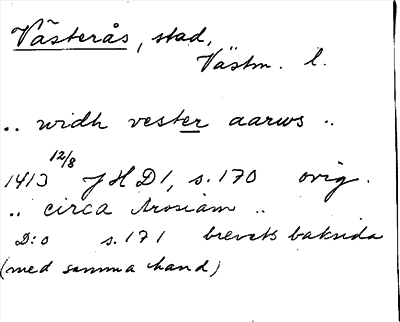 Västerås, stad,
Västm. l.
.. widh vester aarws ..
1413 12/8 JHD1, s. 170 orig.
.. circa Arosiam ..
D:o s. 171 brevets baksida
(med samma hand)